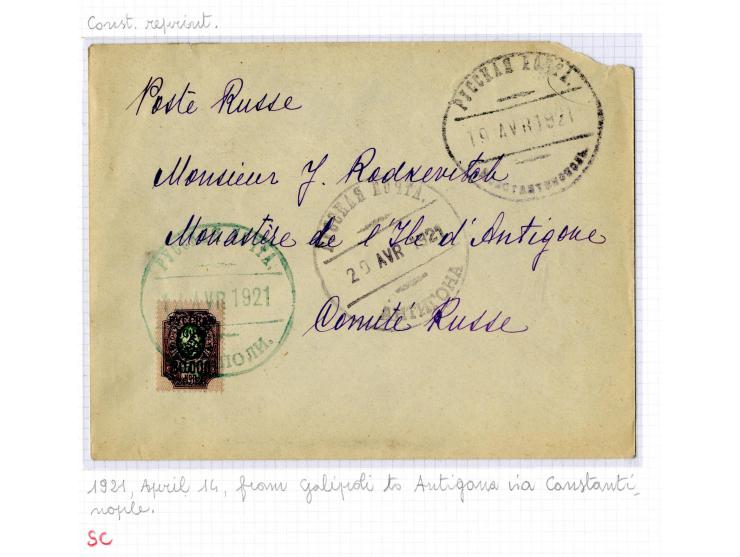 Const. reprint.
Poste Russe
РУССКАЯ ПОЧТА.
19 AVR 1921
КОНСТАНТИНОПОЛЬ
Monsieur J. Radkevitch
РУССКАЯ ПОЧТА.
20 AVR 1921
АНТИГОНА
Monastère de l'Ile d'Antigone
РУССКАЯ ПОЧТА.
AVR 1921
Comité Russe
1921, April 14, from Galipoli to Antigona via Constanti-
nople.
SC